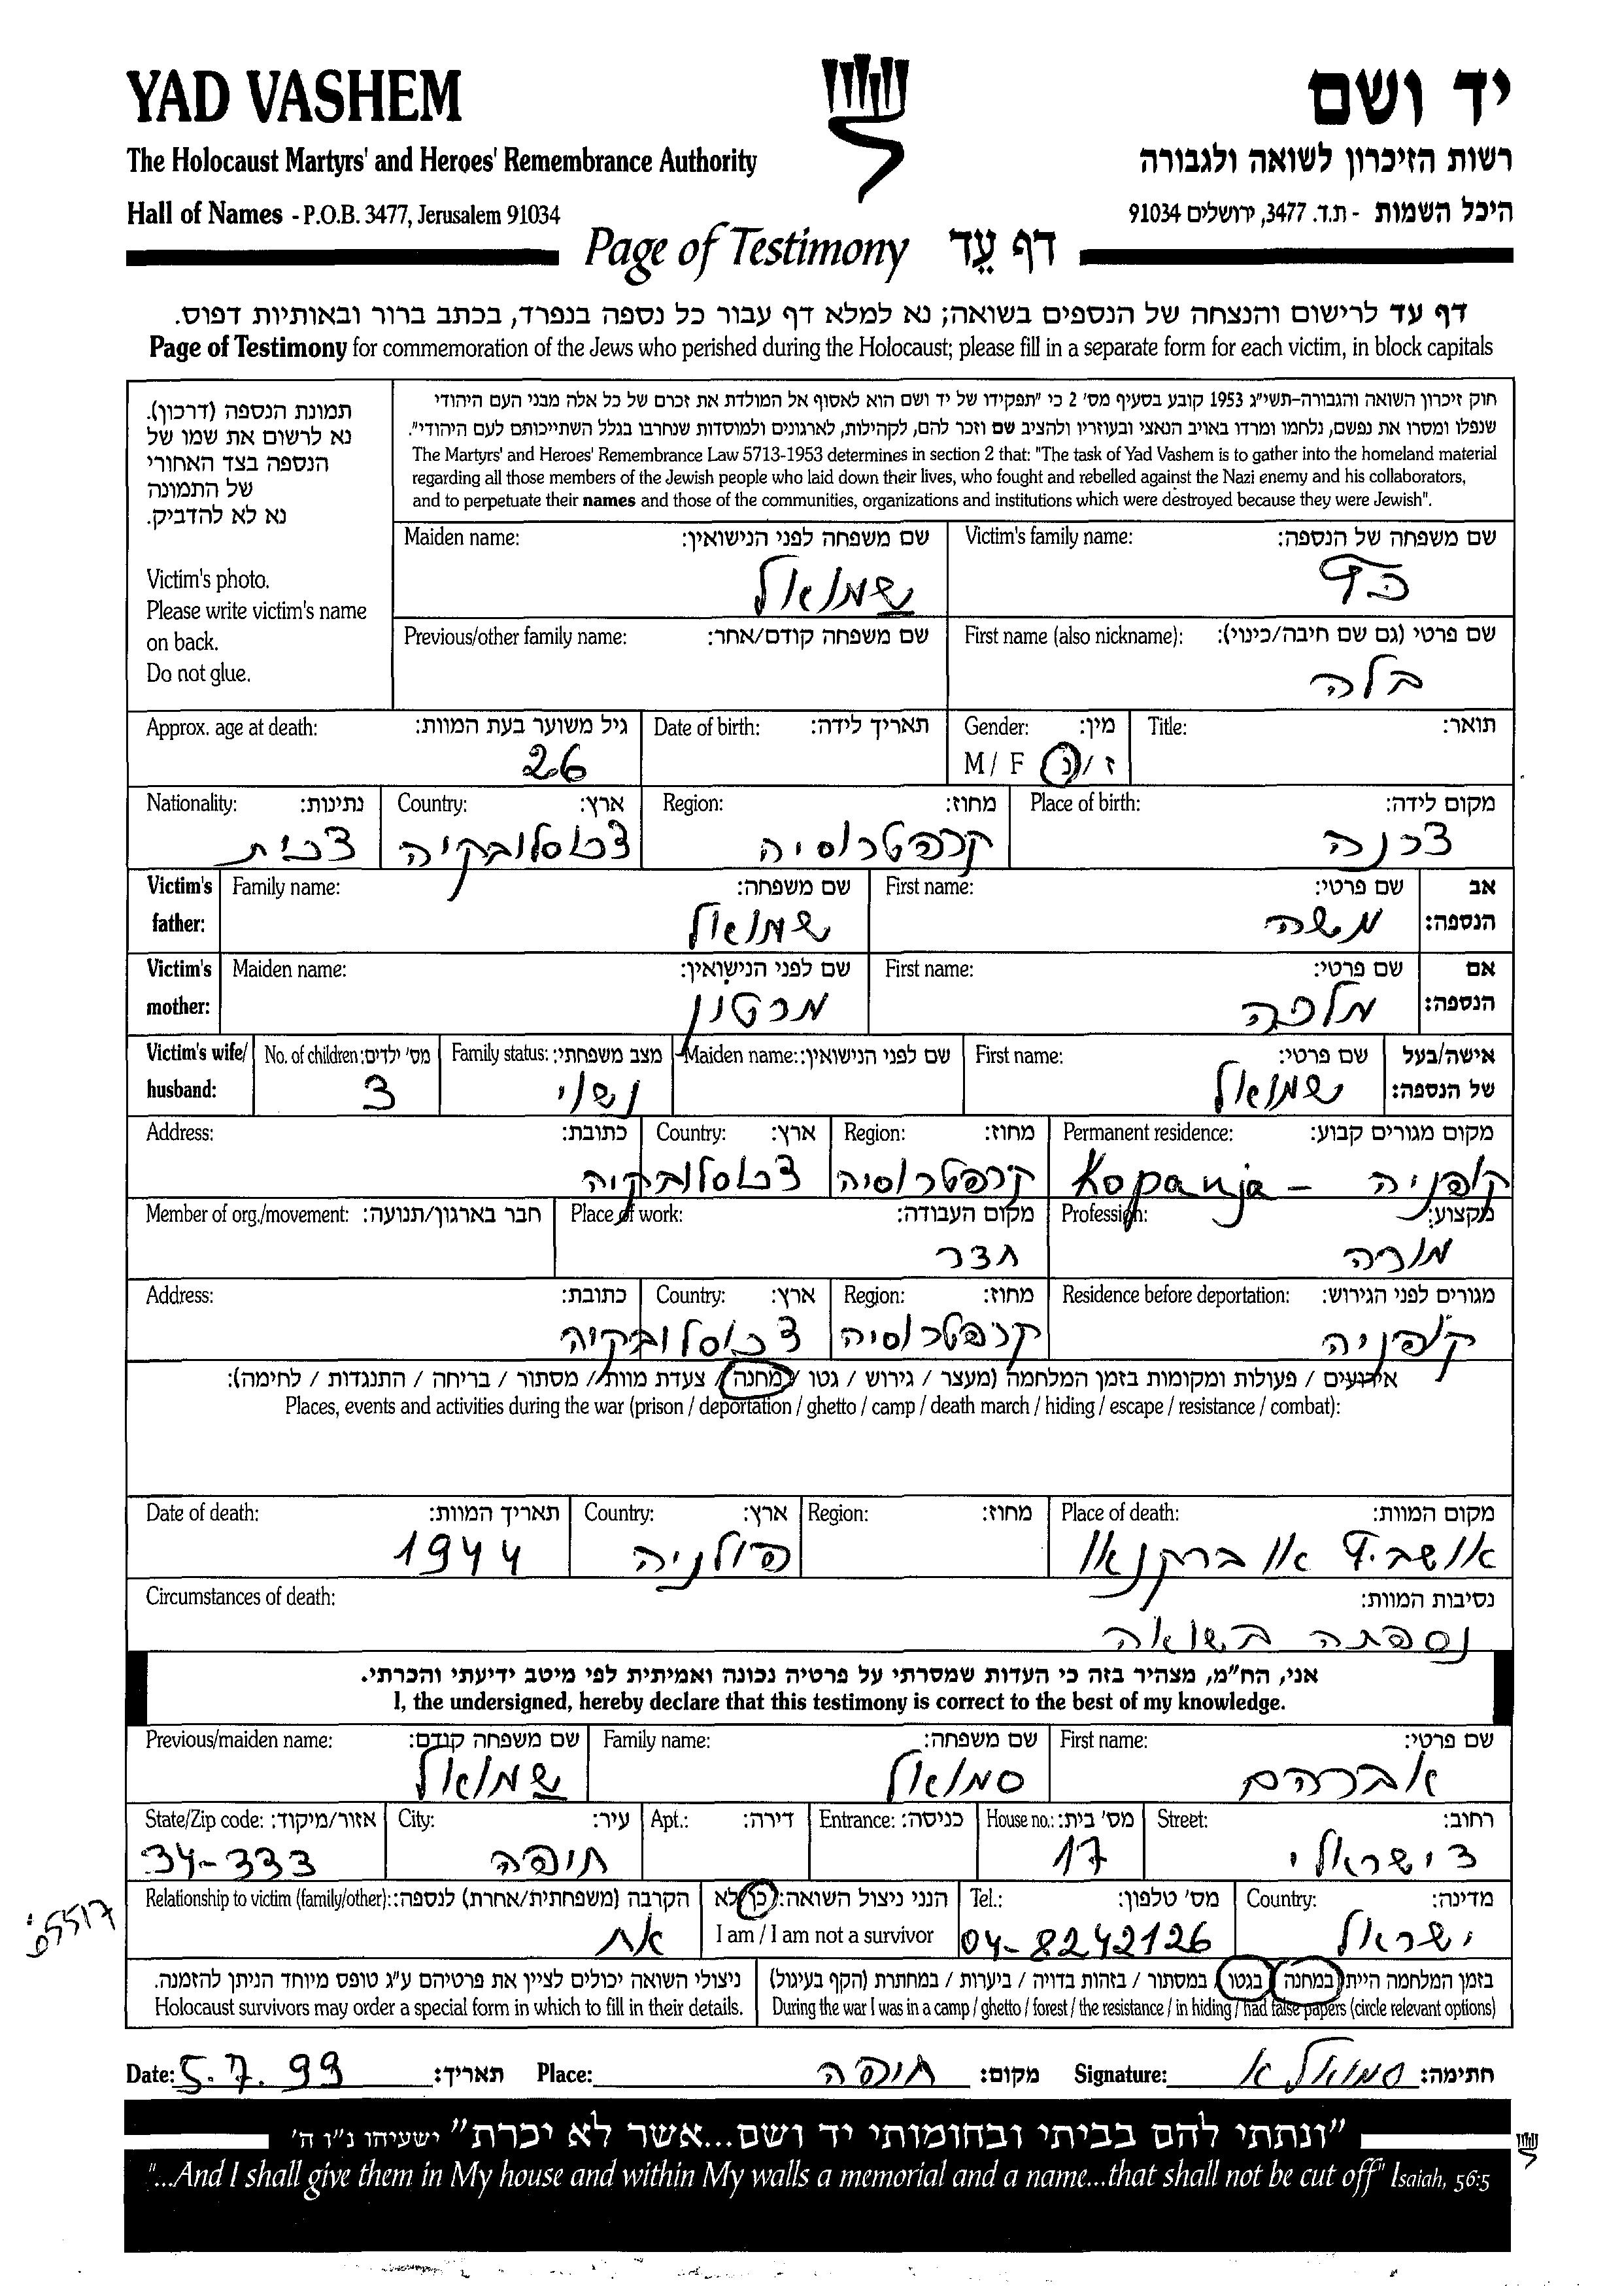 YAD VASHEM יד ושם
The Holocaust Martyrs' and Heroes' Remembrance Authority רשות הזיכרון לשואה ולגבורה
Hall of Names - P.O.B. 3477, Jerusalem 91034 היכל השמות - ת.ד. 3477, ירושלים 91034
Page of Testimony דף עֵד
דף עד לרישום והנצחה של הנספים בשואה; נא למלא דף עבור כל נספה בנפרד, בכתב ברור ובאותיות דפוס.
Page of Testimony for commemoration of the Jews who perished during the Holocaust; please fill in a separate form for each victim, in block capitals
חוק זיכרון השואה והגבורה-תשי״ג 1953 קובע בסעיף מס׳ 2 כי ״תפקידו של יד ושם הוא לאסוף אל המולדת את זכרם של כל אלה מבני העם היהודי
שנפלו ומסרו את נפשם, נלחמו ומרדו באויב הנאצי ובעוזריו ולהציב שם וזכר להם, לקהילות, לארגונים ולמוסדות שנחרבו בגלל השתייכותם לעם היהודי״.
The Martyrs' and Heroes' Remembrance Law 5713-1953 determines in section 2 that: "The task of Yad Vashem is to gather into the homeland material
regarding all those members of the Jewish people who laid down their lives, who fought and rebelled against the Nazi enemy and his collaborators,
and to perpetuate their names and those of the communities, organizations and institutions which were destroyed because they were Jewish".
תמונת הנספה (דרכון).
נא לרשום את שמו של
הנספה בצד האחורי
של התמונה
נא לא להדביק.
Victim's photo.
Please write victim's name
on back.
Do not glue.
Victim's family name: שם משפחה של הנספה: Maiden name: שם משפחה לפני הנישואין:
כץ שמואל
First name (also nickname): שם פרטי (גם שם חיבה/כינוי): Previous/other family name: שם משפחה קודם/אחר:
בלה
Title: תואר: Gender: מין: Date of birth: תאריך לידה: Approx. age at death: גיל משוער בעת המוות:
M / F ז / נ 26
Place of birth: מקום לידה: Region: מחוז: Country: ארץ: Nationality: נתינות:
קרפטרוסיה צכוסלובקיה צכית
Victim's father: אב הנספה: First name: שם פרטי: Family name: שם משפחה:
משה שמואל
Victim's mother: אם הנספה: First name: שם פרטי: Maiden name: שם לפני הנישואין:
מלכה מרטון
Victim's wife/ husband: אישה/בעל של הנספה: First name: שם פרטי: Maiden name: שם לפני הנישואין: Family status: מצב משפחתי: No. of children: מס׳ ילדים:
שמואל נשוי 3
Permanent residence: מקום מגורים קבוע: Region: מחוז: Country: ארץ: Address: כתובת:
קופניה - Kopanja קרפטרוסיה צכוסלובקיה
Profession: מקצוע: Place of work: מקום העבודה: Member of org./movement: חבר בארגון/תנועה:
מורה חדר
Residence before deportation: מגורים לפני הגירוש: Region: מחוז: Country: ארץ: Address: כתובת:
קופניה קרפטרוסיה צכוסלובקיה
אירועים / פעולות ומקומות בזמן המלחמה (מעצר / גירוש / גטו / מחנה / צעדת מוות / מסתור / בריחה / התנגדות / לחימה):
Places, events and activities during the war (prison / deportation / ghetto / camp / death march / hiding / escape / resistance / combat):
Place of death: מקום המוות: Region: מחוז: Country: ארץ: Date of death: תאריך המוות:
או ברקנאו פולניה 1944
Circumstances of death: נסיבות המוות:
נספתה בשואה
אני, הח״מ, מצהיר בזה כי העדות שמסרתי על פרטיה נכונה ואמיתית לפי מיטב ידיעתי והכרתי.
I, the undersigned, hereby declare that this testimony is correct to the best of my knowledge.
First name: שם פרטי: Family name: שם משפחה: Previous/maiden name: שם משפחה קודם:
אברהם סמואל שמואל
Street: רחוב: House no.: מס׳ בית: Entrance: כניסה: Apt.: דירה: City: עיר: State/Zip code: אזור/מיקוד:
דישראלי 17 חיפה 34-333
Country: מדינה: Tel.: מס׳ טלפון: הנני ניצול השואה: כן/לא I am / I am not a survivor Relationship to victim (family/other): הקרבה (משפחתית/אחרת) לנספה:
ישראל 04-8242126 אח
בזמן המלחמה הייתי במחנה / בגטו / במסתור / בזהות בדויה / ביערות / במחתרת (הקף בעיגול)
During the war I was in a camp / ghetto / forest / the resistance / in hiding / had false papers (circle relevant options)
ניצולי השואה יכולים לציין את פרטיהם ע״ג טופס מיוחד הניתן להזמנה.
Holocaust survivors may order a special form in which to fill in their details.
Date: 5.7.99 תאריך: Place: חיפה מקום: Signature: סמואל א חתימה:
״ונתתי להם בביתי ובחומותי יד ושם...אשר לא יכרת״ ישעיהו נ״ו ה׳
"...And I shall give them in My house and within My walls a memorial and a name...that shall not be cut off" Isaiah, 56:5